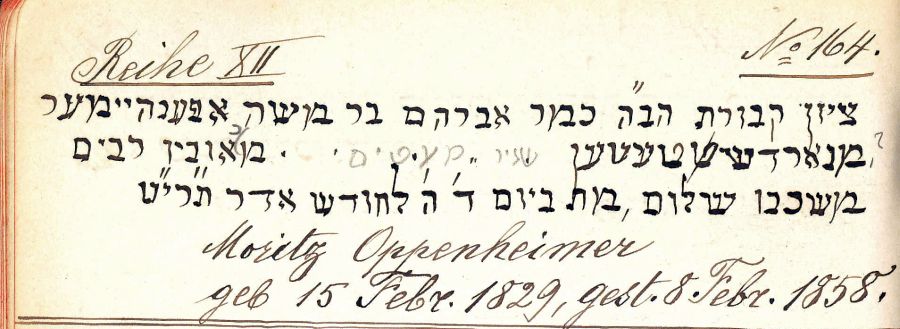 Reihe XII
No 164.
ציון קבורת הב"ה כמר אברהם בר משה אפענהיימער
מנארדשטעטען שניו מעטים. מאובין רבים
משכבו שלום, מת ביום ד' ה' לחודש אדר תרי"ט
Moritz Oppenheimer
geb 15 Febr. 1829, gest. 8 Febr. 1858.